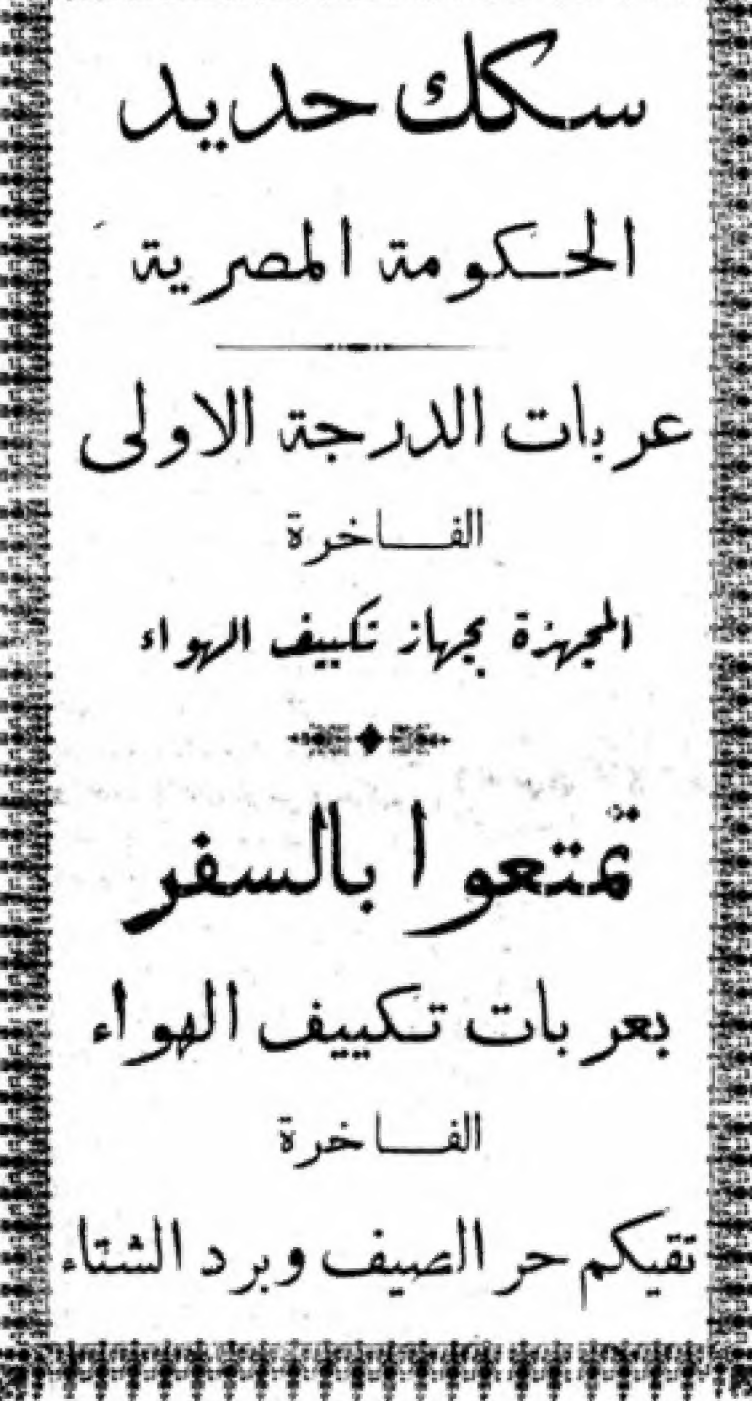 سكك حديد
الحكومة المصرية
عربات الدرجة الاولى
الفاخرة
المجهزة بجهاز تكييف الهواء
تمتعوا بالسفر
بعربات تكييف الهواء
الفاخرة
تقيكم حر الصيف وبرد الشتاء